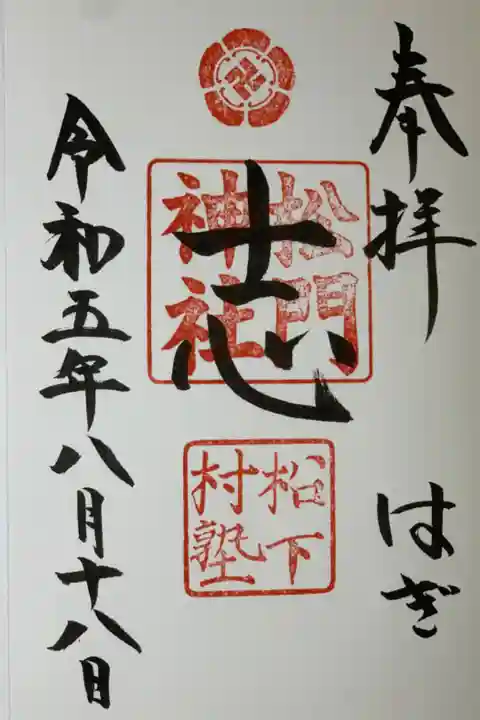 奉拝 はぎ
志
松門
神社
松下
村塾
令和五年八月十八日